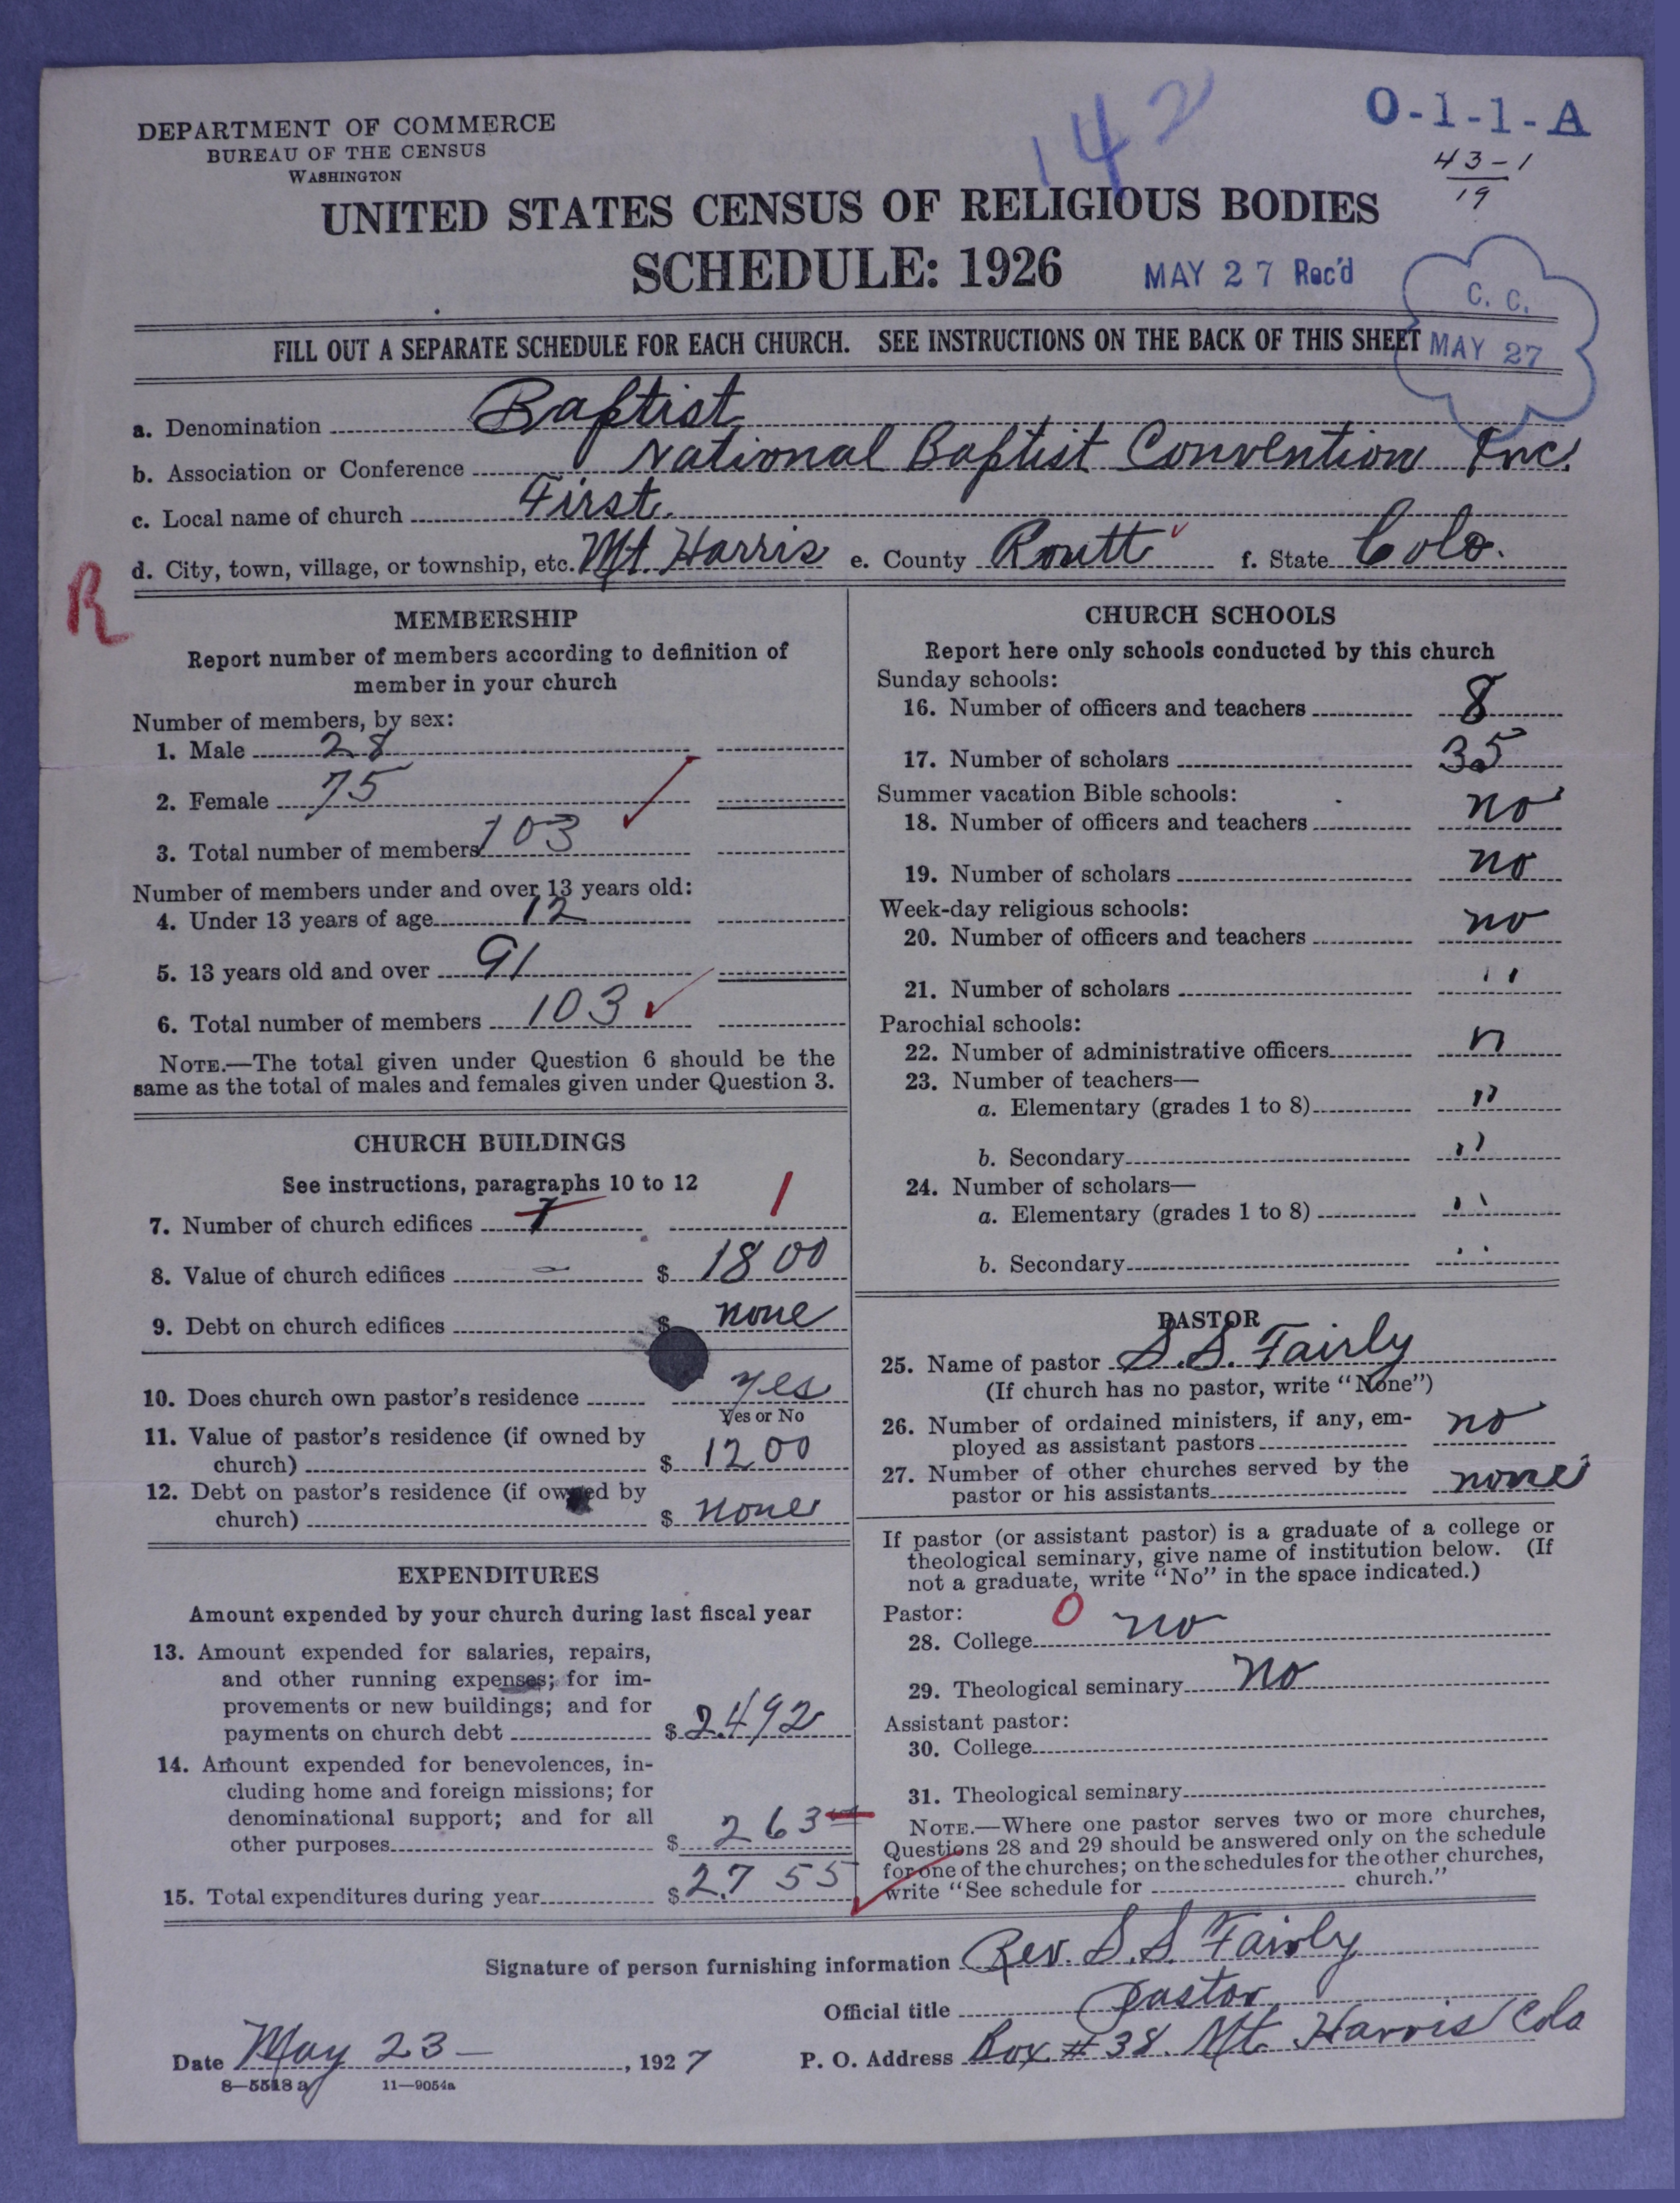 142
O-1-1-A
43-1
19
DEPARTMENT OF COMMERCE
BUREAU OF THE CENSUS
WASHINGTON
UNITED STATES CENSUS OF RELIGIOUS BODIES
SCHEDULE: 1926
MAY 27 Rec'd
C. C.
MAY 27
FILL OUT A SEPARATE SCHEDULE FOR EACH CHURCH. SEE INSTRUCTIONS ON THE BACK OF THIS SHEET
a. Denomination Baptist
b. Association or Conference National Baptist Convention Inc.
c. Local name of church First
d. City, town, village, or township, etc. Mt. Harris e. County Routt f. State Colo.
R
MEMBERSHIP
Report number of members according to definition of
member in your church
Number of members, by sex:
1. Male 28
2. Female 75
3. Total number of members 103
Number of members under and over 13 years old:
4. Under 13 years of age 12
5. 13 years old and over 91
6. Total number of members 103
NOTE.—The total given under Question 6 should be the
same as the total of males and females given under Question 3.
CHURCH BUILDINGS
See instructions, paragraphs 10 to 12
7. Number of church edifices 1 1
8. Value of church edifices $ 1800
9. Debt on church edifices $ none
10. Does church own pastor's residence yes
Yes or No
11. Value of pastor's residence (if owned by
church) $ 1200
12. Debt on pastor's residence (if owned by
church) $ none
EXPENDITURES
Amount expended by your church during last fiscal year
13. Amount expended for salaries, repairs,
and other running expenses; for im-
provements or new buildings; and for
payments on church debt $ 2492
14. Amount expended for benevolences, in-
cluding home and foreign missions; for
denominational support; and for all
other purposes $ 263
15. Total expenditures during year $ 2755
CHURCH SCHOOLS
Report here only schools conducted by this church
Sunday schools:
16. Number of officers and teachers 8
17. Number of scholars 35
Summer vacation Bible schools:
18. Number of officers and teachers no
19. Number of scholars no
Week-day religious schools:
20. Number of officers and teachers no
21. Number of scholars "
Parochial schools:
22. Number of administrative officers n
23. Number of teachers—
a. Elementary (grades 1 to 8) "
b. Secondary "
24. Number of scholars—
a. Elementary (grades 1 to 8) "
b. Secondary "
PASTOR
25. Name of pastor S.S. Fairly
(If church has no pastor, write "None")
26. Number of ordained ministers, if any, em-
ployed as assistant pastors no
27. Number of other churches served by the
pastor or his assistants none
If pastor (or assistant pastor) is a graduate of a college or
theological seminary, give name of institution below. (If
not a graduate, write "No" in the space indicated.)
Pastor: 0
28. College no
29. Theological seminary No
Assistant pastor:
30. College
31. Theological seminary
NOTE.—Where one pastor serves two or more churches,
Questions 28 and 29 should be answered only on the schedule
for one of the churches; on the schedules for the other churches,
write "See schedule for church."
Signature of person furnishing information Rev. S.S. Fairly
Official title pastor
Date May 23 — , 1927 P. O. Address Box #38. Mt. Harris Colo
8—5518a 11—9054a